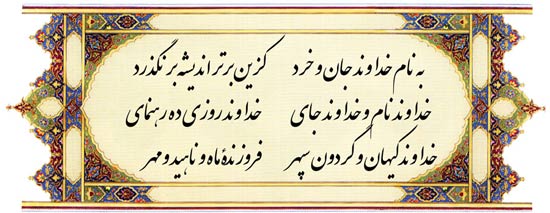 به نام خداوند جان و خرد کزین برتر اندیشه برنگذرد
خداوند نام و خداوند جای خداوند روزی ده رهنمای
خداوند کیهان و گردون سپهر فروزندهٔ ماه و ناهید و مهر